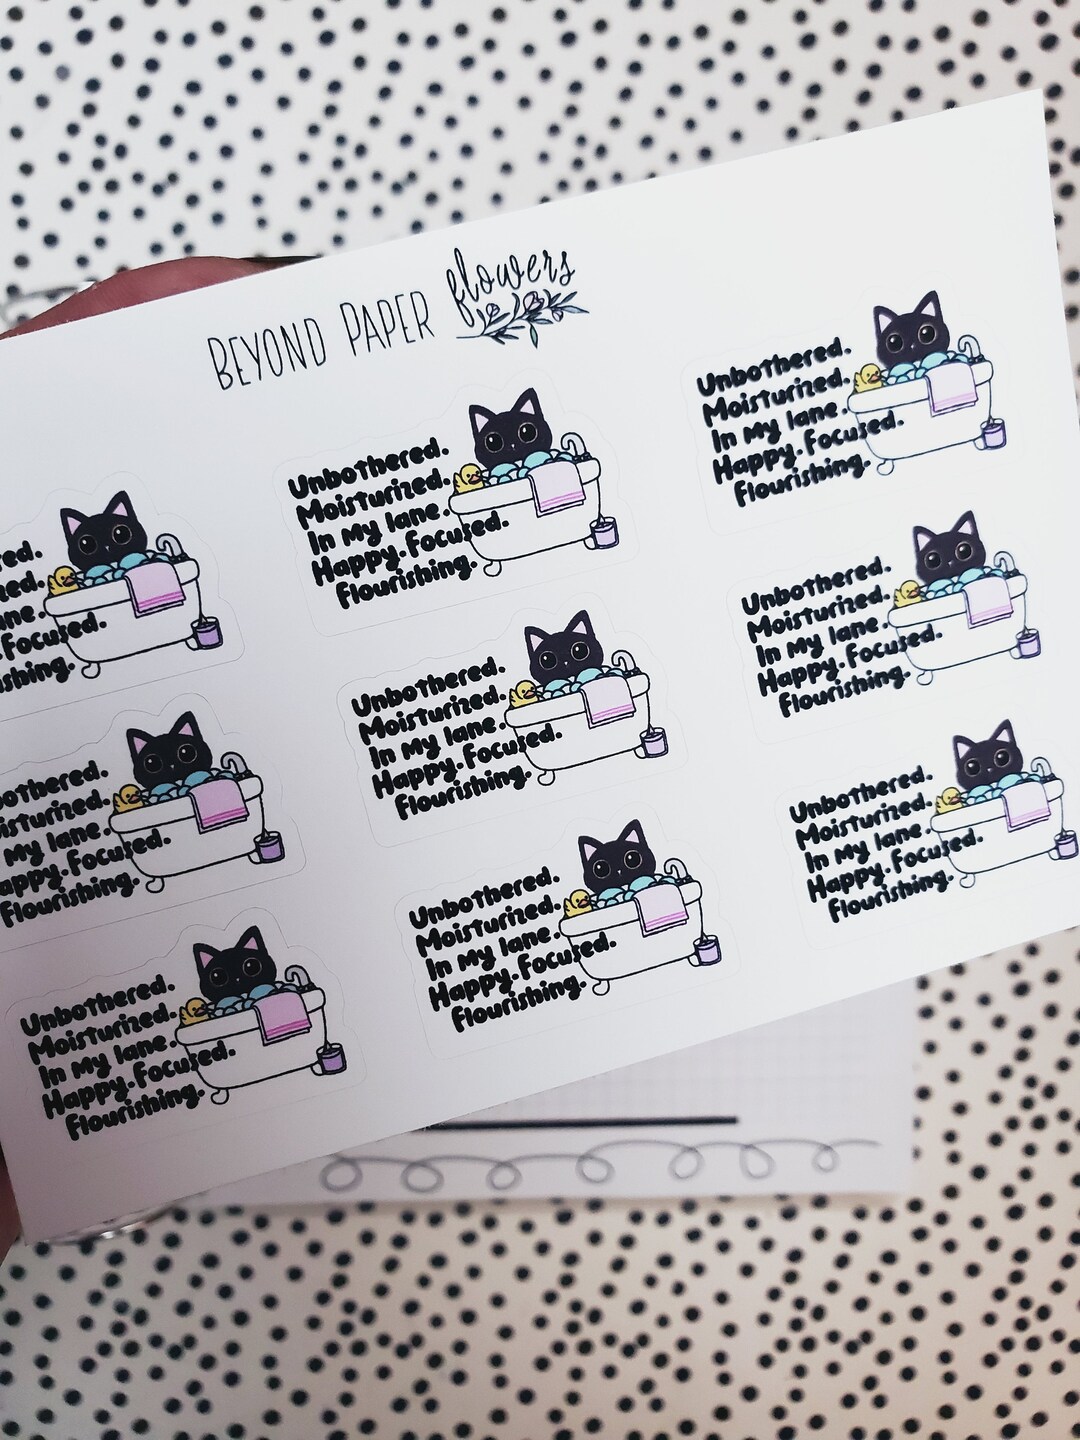 BEYOND PAPER flowers
Unbothered.
Moisturized.
In My lane.
Happy. Focused.
Flourishing.
Unbothered.
Moisturized.
In My lane.
Happy. Focused.
Flourishing.
red.
zed.
ane.
. Focused.
shing.
Unbothered.
Moisturized.
In My lane.
Happy. Focused.
Flourishing.
Unbothered.
Moisturized.
In My lane.
Happy. Focused.
Flourishing.
bothered.
isturized.
My lane.
appy. Focused.
Flourishing.
Unbothered.
Moisturized.
In My lane.
Happy. Focused.
Flourishing.
Unbothered.
Moisturized.
In My lane.
Happy. Focused.
Flourishing.
Unbothered.
Moisturized.
In My lane.
Happy. Focused.
Flourishing.